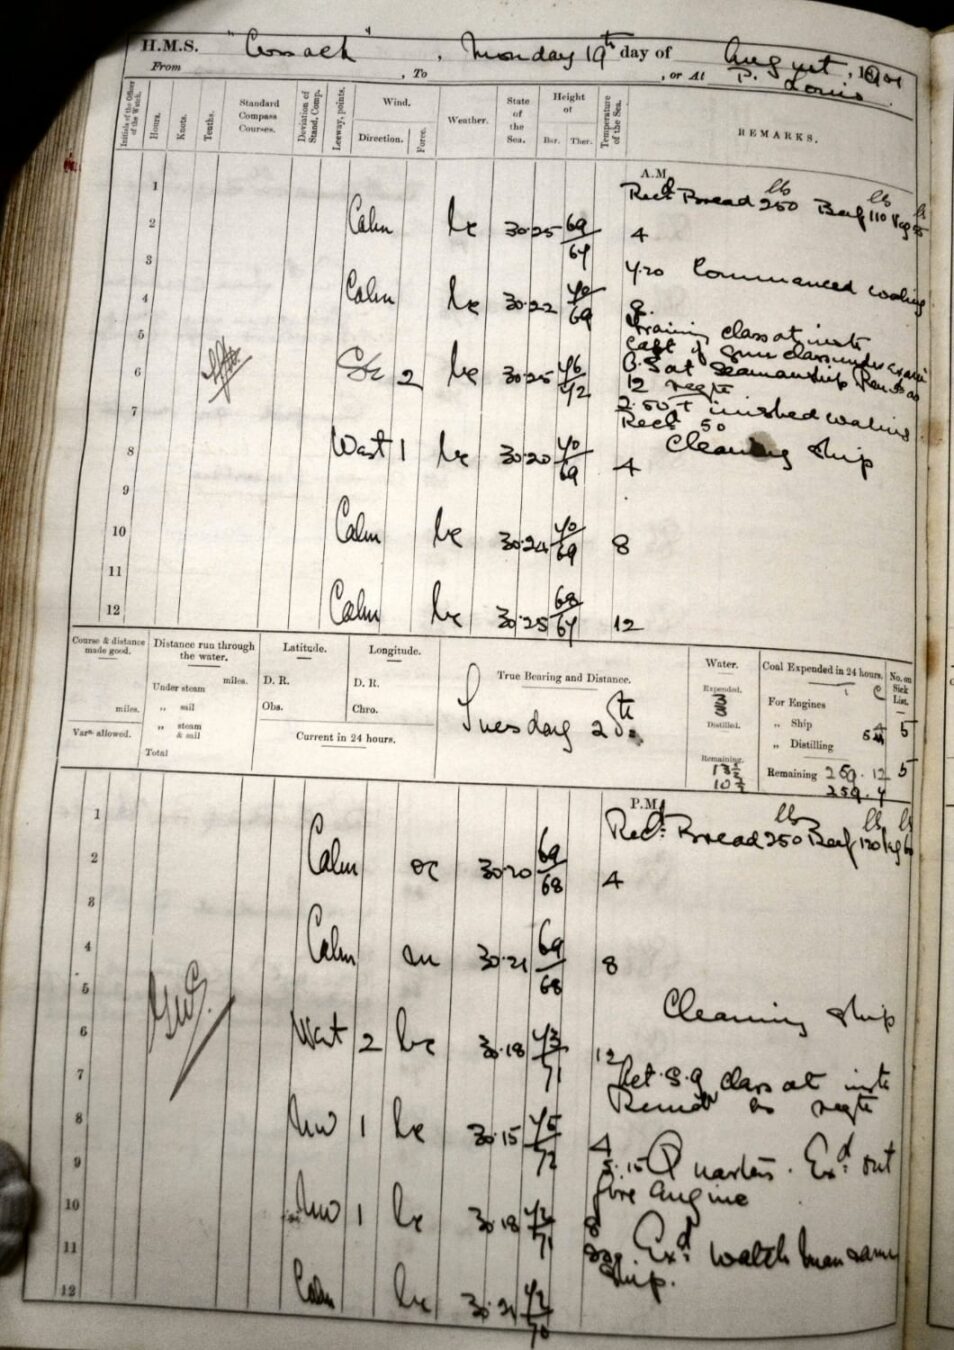 H.M.S. "Cossack", Monday 19th day of August, 1901
From , To , or At P. Louis.
Initials of the Officer of the Watch.
Hours.
Knots.
Tenths.
Standard Compass Courses.
Deviation of Stand. Comp.
Leeway, points.
Wind.
Direction. Force.
Weather.
State of the Sea.
Height of
Bar. Ther.
Temperature of the Sea.
REMARKS.
A.M.
1
Recd Bread 250 lb Beef 110 lb Veg
2 Calm bc 30.25 69/67 4
3
4.20 Commenced coaling
4 Calm bc 30.22 70/69 8
5
Training class at inste
6 2 bc 30.25 76/72
O.S at Seamanship
12 negte
7
2.50 Finished coaling
Recd 50
8 West 1 bc 30.20 70/69 4 Cleaning Ship
9
10 Calm bc 30.24 70/69 8
11
12 Calm bc 30.25 68/67 12
Course & distance made good.
miles.
Varn. allowed.
Distance run through the water.
miles.
Under steam
„ sail
„ steam & sail
Total
Latitude.
D. R.
Obs.
Longitude.
D. R.
Chro.
Current in 24 hours.
True Bearing and Distance.
Tuesday 20th
Water.
Expended.
3
3
Distilled.
Remaining.
13½
10½
Coal Expended in 24 hours.
T C
For Engines
„ Ship
„ Distilling
Remaining 259.12
259.4
No. on Sick List.
5
5
P.M.
1
Recd: Bread 250 lb Beef 120 lb
2 Calm oc 30.20 69/68 4
3
4 Calm m 30.21 69/68 8
5
Cleaning Ship
6 West 2 bc 30.18 73/71 12
7
S.G class at inste
Remdr as negte
8 NW 1 bc 30.15 75/72 4
9
5.15 Quarters. Exd: out
fire Engine
10 NW 1 bc 30.18 73/71 8
11
Exd: watch man same
ship.
12 Calm bc 30.21 72/70